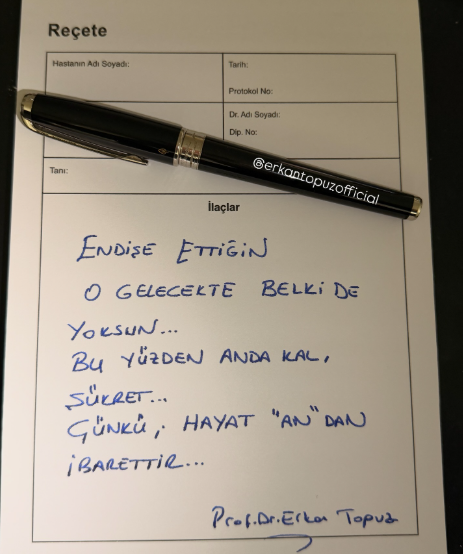 Reçete
Hastanın Adı Soyadı:
Tarih:
Protokol No:
Dr. Adı Soyadı:
Dip. No:
@erkantopuzofficial
Tanı:
İlaçlar
ENDİŞE ETTİĞİN
O GELECEKTE BELKİ DE
YOKSUN...
BU YÜZDEN ANDA KAL,
ŞÜKRET...
ÇÜNKÜ, HAYAT "AN"DAN
İBARETTİR...
Prof.Dr.Erkan Topuz